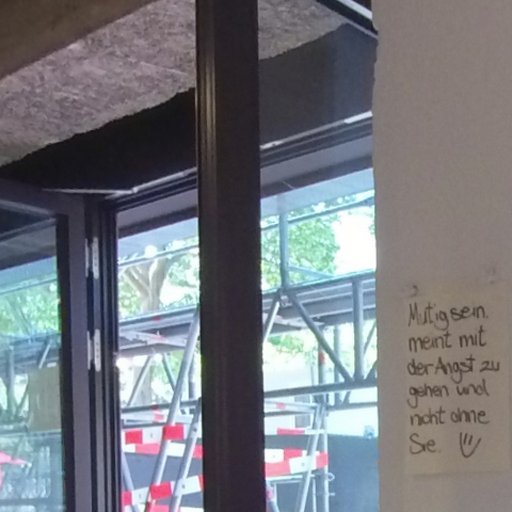 Mutig sein.
meint mit
der Angst zu
gehen und
nicht ohne
Sie.